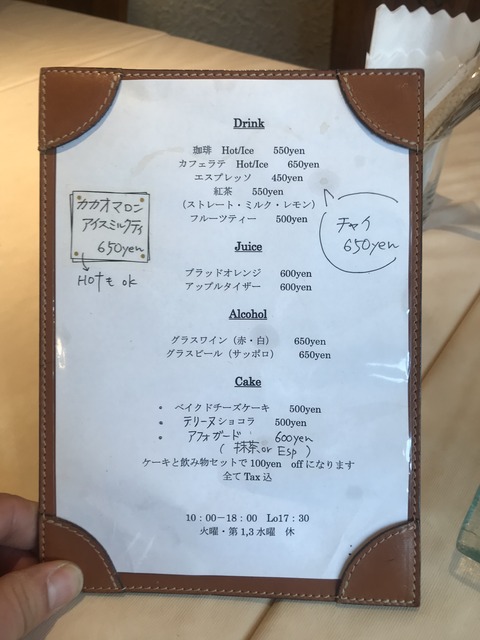 Drink
珈琲 Hot/Ice 550yen
カフェラテ Hot/Ice 650yen
エスプレッソ 450yen
紅茶 550yen
（ストレート・ミルク・レモン）
フルーツティー 500yen
チャイ
650yen
カカオマロン
アイスミルクティ
650yen
Hotも ok
Juice
ブラッドオレンジ 600yen
アップルタイザー 600yen
Alcohol
グラスワイン（赤・白） 650yen
グラスビール（サッポロ） 650yen
Cake
• ベイクドチーズケーキ 500yen
• テリーヌショコラ 500yen
• アフォガード 600yen
（抹茶 or Esp）
ケーキと飲み物セットで100yen offになります
全てTax込
10：00－18：00 Lo17：30
火曜・第1,3水曜 休